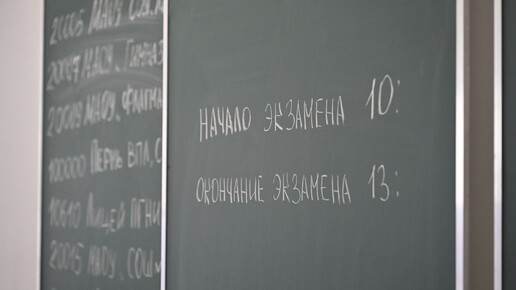 20005 МАОУ
20007 МАОУ, Гимназ
20009 МАОУ,
100000 Пермь ВПЛ, С
10610 Лицей ПГНИ
20015 МАОУ, СОШ
НАЧАЛО ЭКЗАМЕНА 10:
ОКОНЧАНИЕ ЭКЗАМЕНА 13: